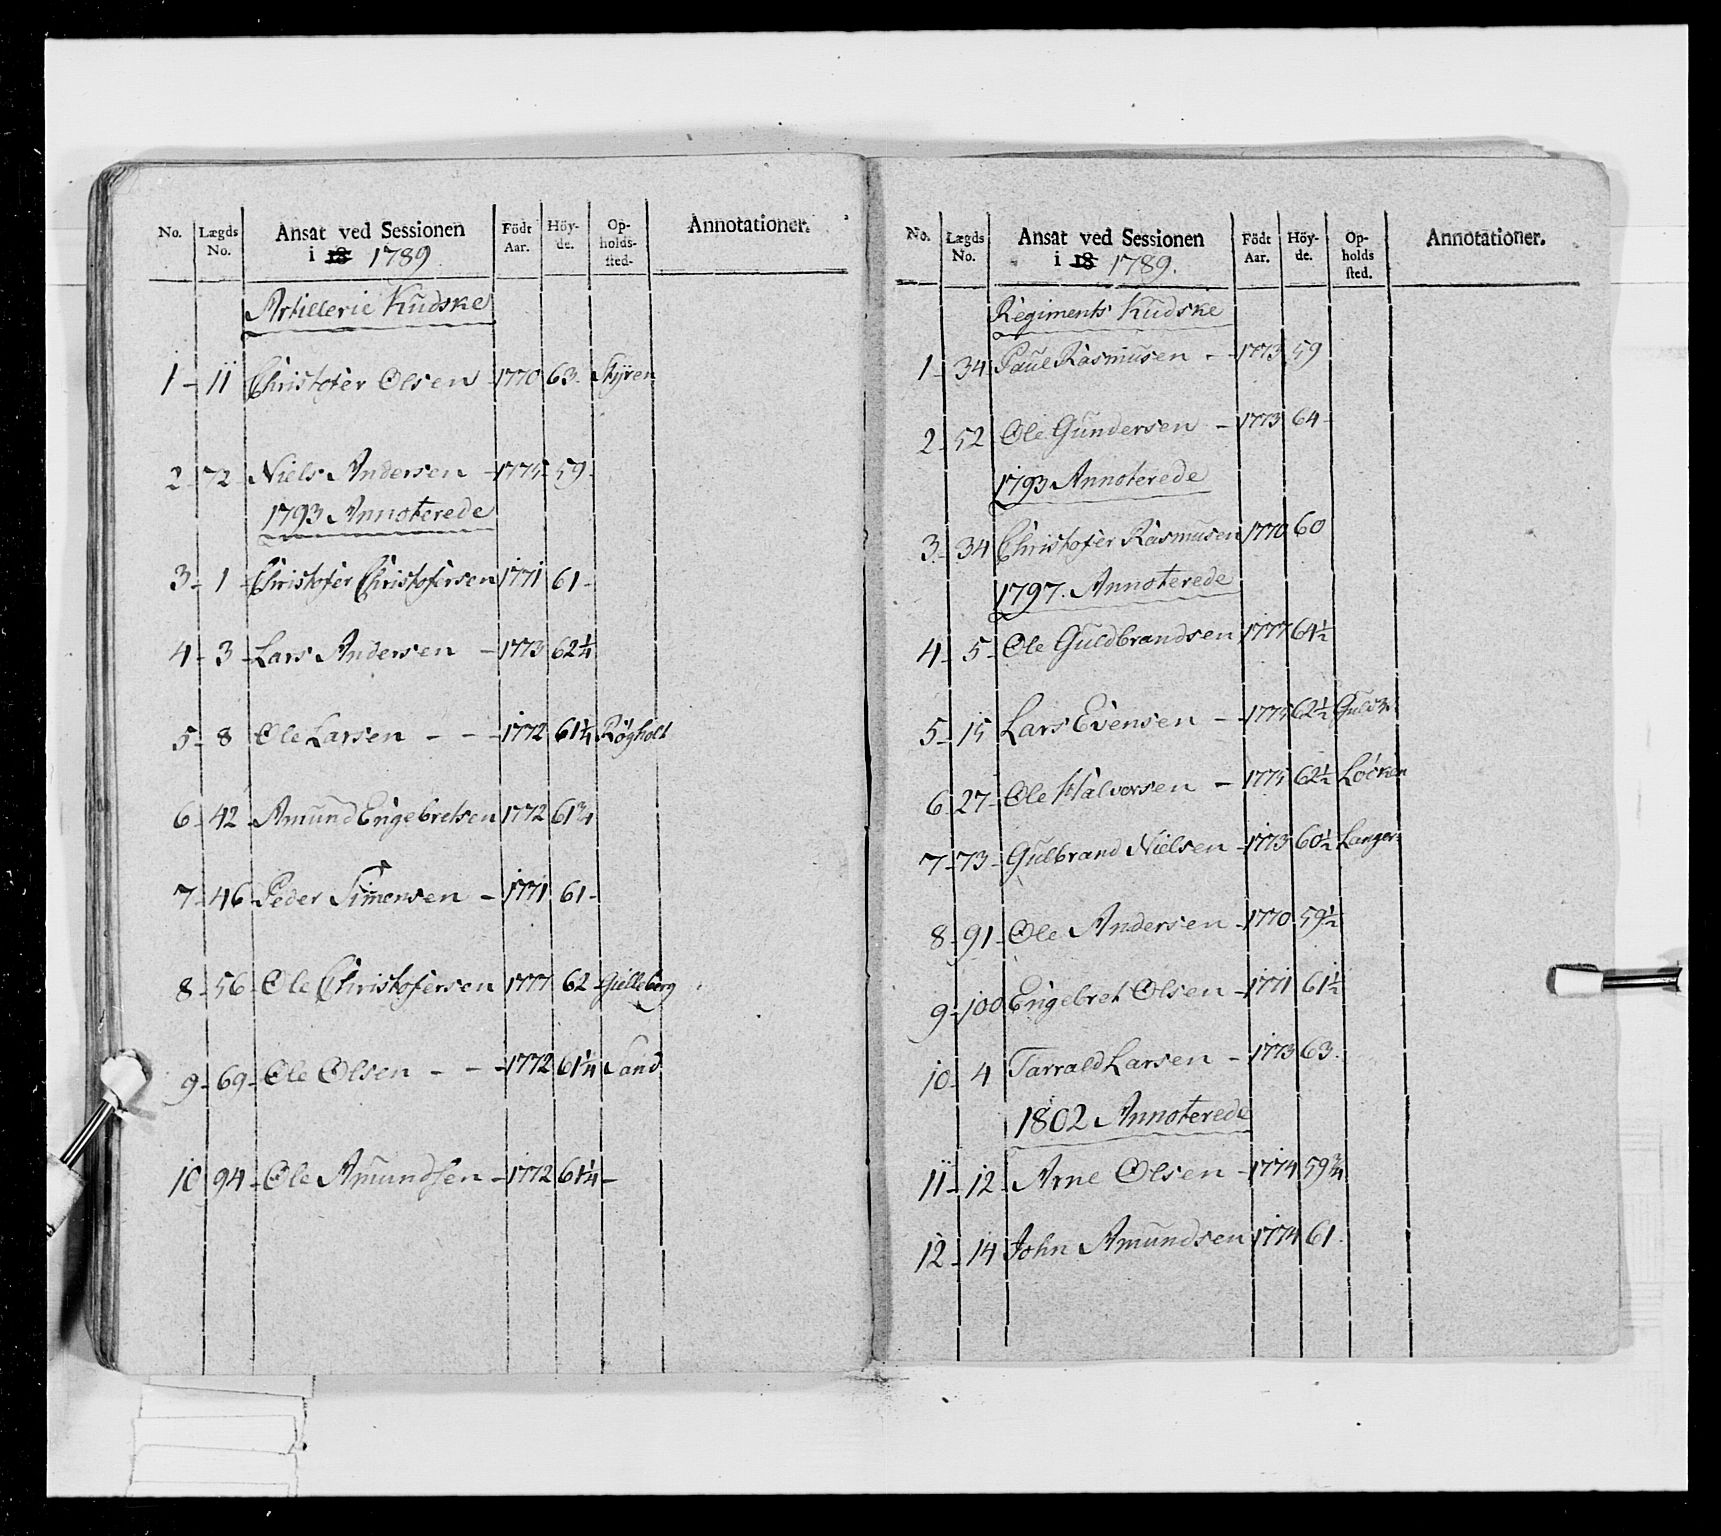 No. Lægds No. Ansat ved Sessionen i 18 1789 Födt Aar. Höyde. Opholds-sted. Annotationer.
Artillerie Kudske
1 - 11 Christofer Olsen - 1770 63. Styren
2 - 72 Niels Andersen - 1775 59 -
1793 Annoterede
3 - 1 - Christofer Christofersen 1771 61 -
4 - 3 - Lars Andersen - 1773 62 1/4
5 - 8 Ole Larsen - - - 1772 61 1/4 Røgholt
6 - 42 - Amund Engebretsen 1772 61 3/4
7 - 46 - Peder Simensen - 1771 61 -
8 - 56 - Ole Christofersen 1777 62 - Gielleberg
9 - 69 - Ole Olsen - - - 1772 61 1/4 Sand
10 94 - Ole Amundsen - 1772 61 1/4 -
No. Lægds No. Ansat ved Sessionen i 18 1789. Födt Aar. Höyde. Opholds sted. Annotationer.
Regiments Kudske
1 - 34 Paul Rasmusen - 1773 59
2 - 52 Ole Gundersen - 1773 64 -
1793 Annoterede
3 - 34 Christofer Rasmusen 1770 60
1797. Annoterede
4 - 5 - Ole Guldbrandsen 1777 64 1/2
5 - 15 Lars Evensen - 1775 62 1/2
6 27 - Ole Halvorsen - 1775 62 1/2 Löcken
7 - 73 - Gulbrand Nielsen - 1773 60 1/2 Langer:
8 - 91 - Ole Andersen - 1770 59 1/2
9 - 100 Engebret Olsen - 1771 61 1/2
10 - 4 Tarrald Larsen - 1773 63.
1802 Annoterede
11 - 12 - Arne Olsen - 1774 59 3/4
12 - 14 John Amundsen 1774 61.